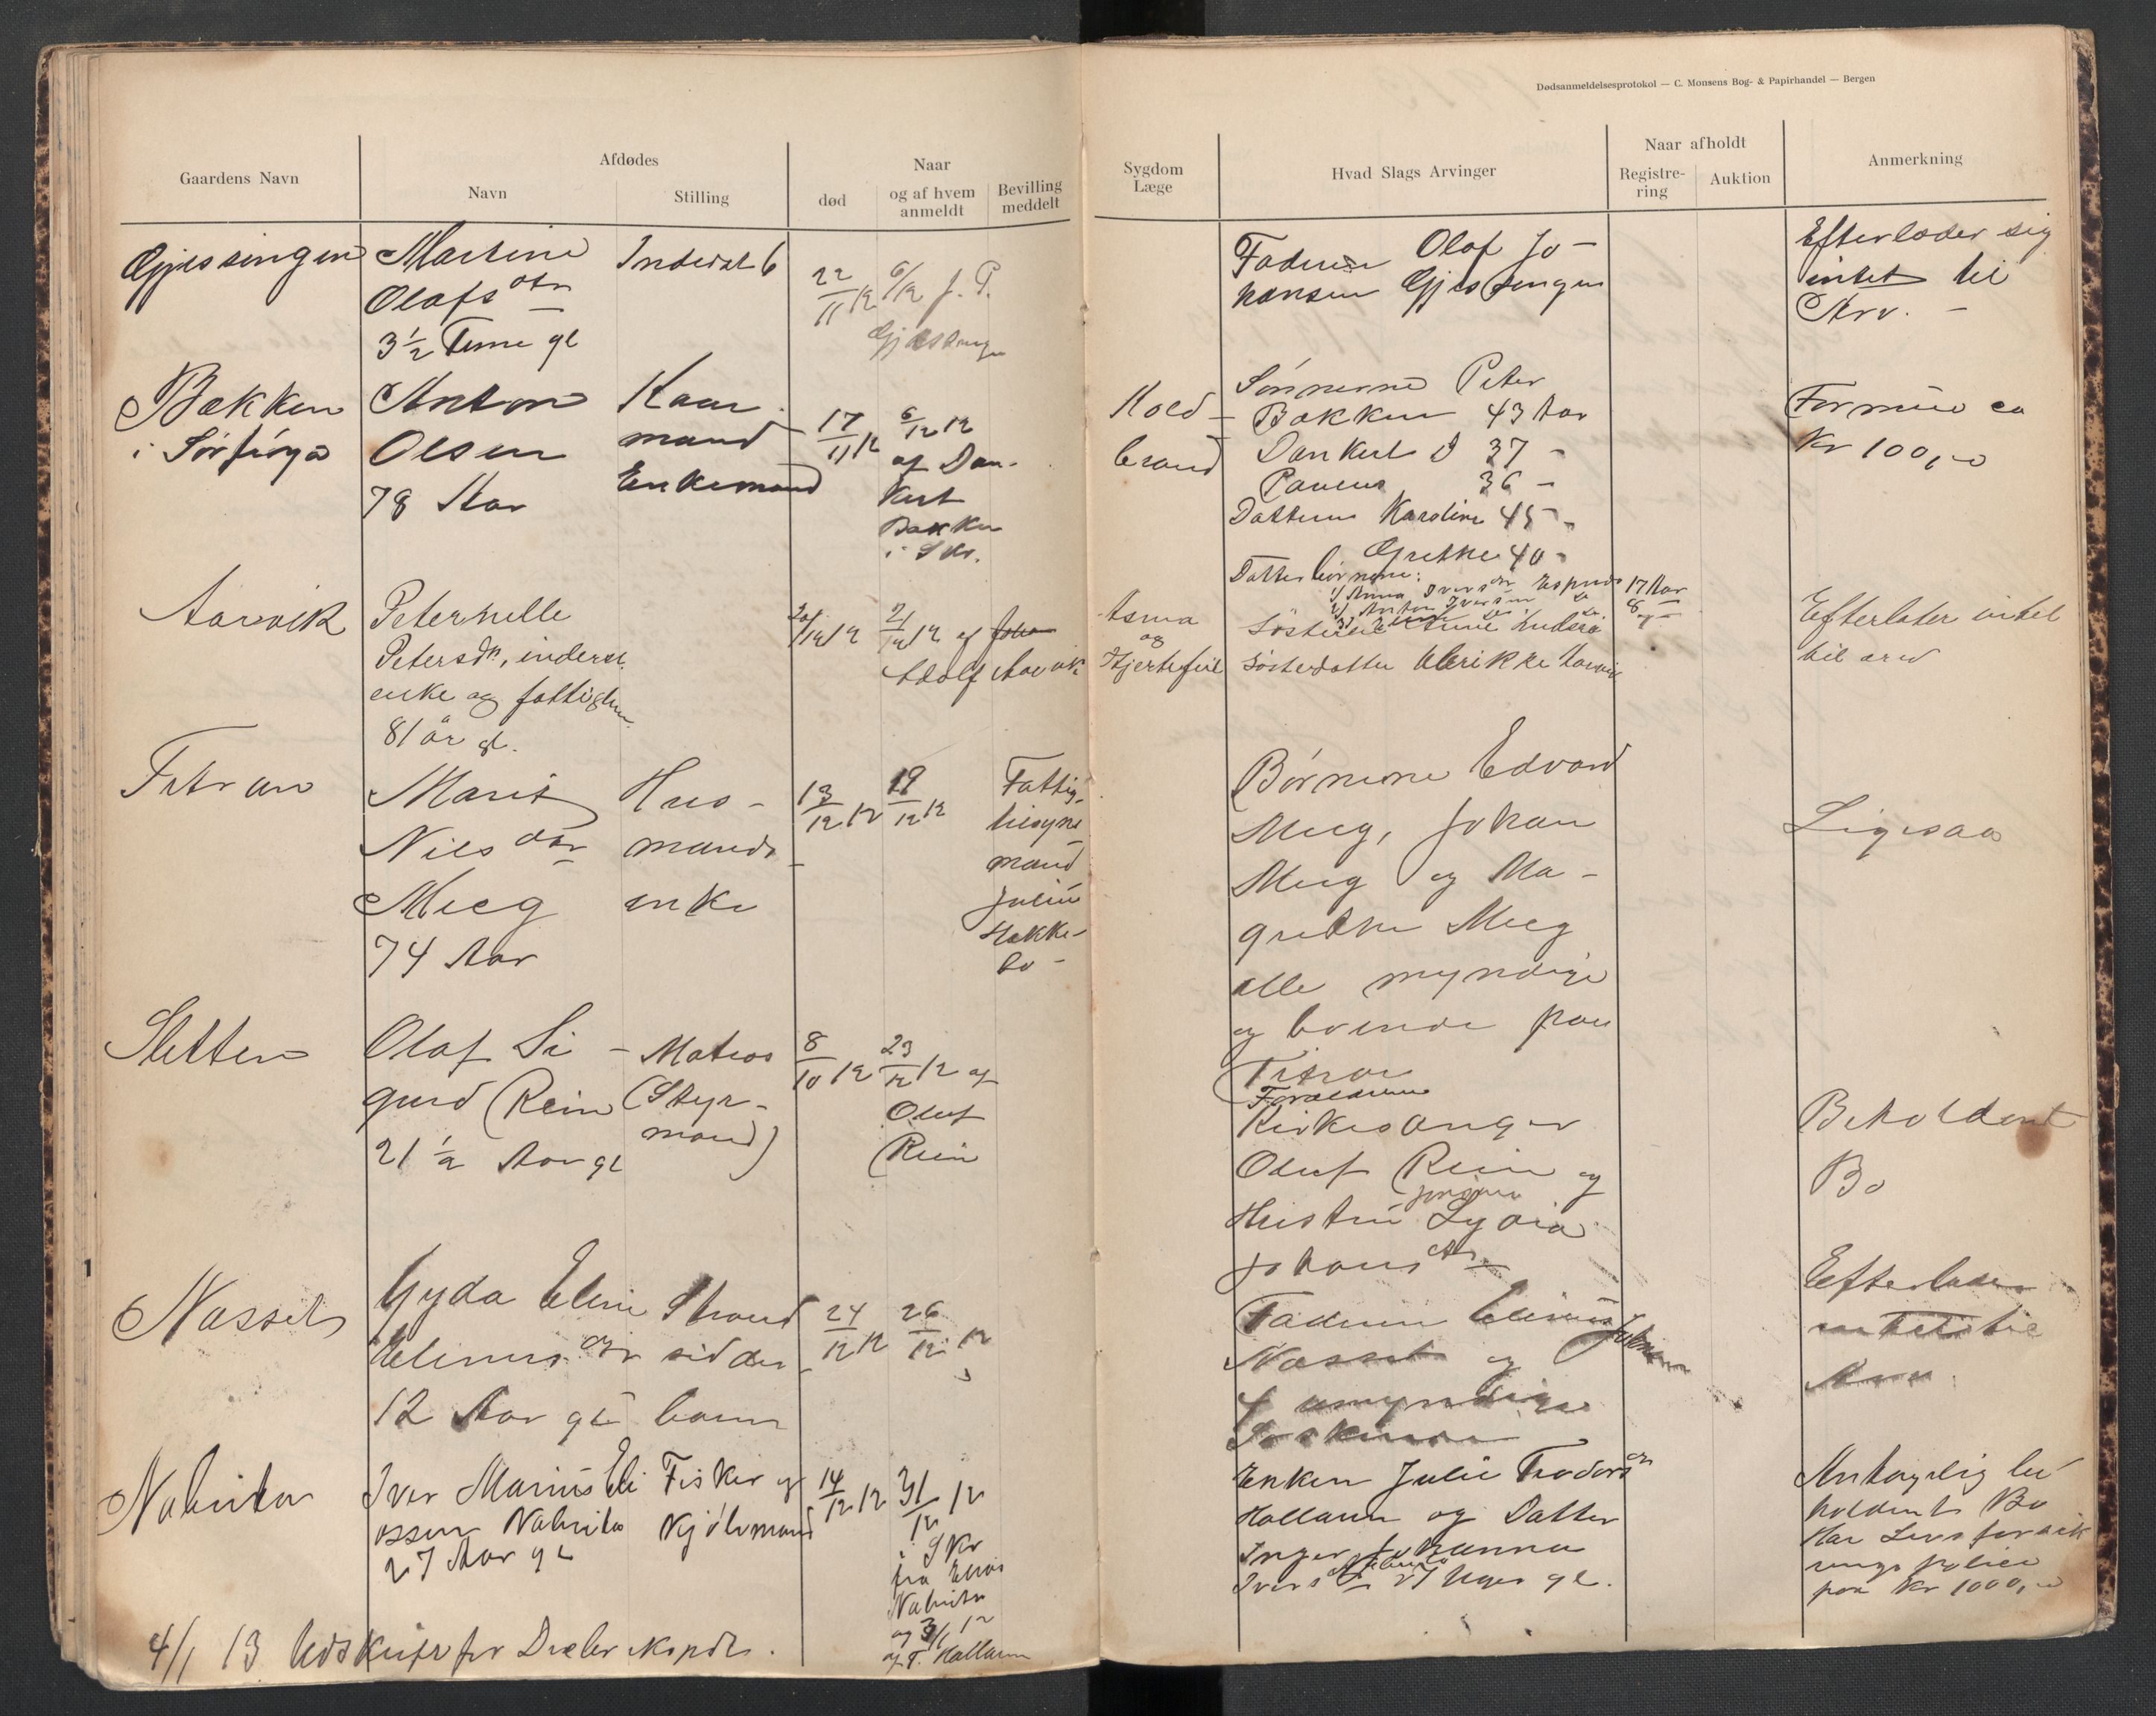 Dødsanmeldelsesprotokol — C. Monsens Bog- & Papirhandel — Bergen
Gaardens Navn
Afdødes
Navn
Stilling
Naar
død
og af hvem
anmeldt
Bevilling
meddelt
Sygdom
Læge
Hvad Slags Arvinger
Naar afholdt
Registre-
ring
Auktion
Anmerkning
Gjessingen
Martine
Olafsdtr
3½ Time gl
Inderst b
22/11 12
6/12 f. P.
Gjessingen
Faderen Olaf Jo-
hansen Gjessingen
Efterlader sig
intet til
Arv. -
Bakken
i Sörfröya
Anton
Olsen
78 Aar
Kaar
mand
Enkemand
17/11 12
6/12 12
af Dan-
kert
Bakken
i Skr.
Kold-
brand
Sönnerne Peter
Bakken 43 Aar
Dankert D 37 -
Paulus 36 -
Döttrene Karoline 45 -
Grethe 40 -
Datterbörnene:
1) Anna Iversdtr 17 Aar
2) Anton Iversen 8 -
Formue ca
Kr 100,00
Aarvik
Peternelle
Petersdtr, inderst
enke og fattiglem
81 år gl.
20/12 12
21/12 12 af Johan
Adolf Aarvik
Astma
og
Hjertefeil
Söster
Sösterdatter Ulrikke Aarvik
Efterlater intet
til arv
Titran
Marit
Nilsdtr
Meeg
74 Aar
Hus-
mands-
enke
13/12 12
19/12 12
Fattig-
tilsyns
mand
Julius
Hakke-
bo -
Börnene Edvard
Meeg, Johan
Meeg og Ma-
grethe Meeg
alle myndige
og boende paa
Titran
Ligesaa
Sletten
Olaf Si-
gurd Rein
21½ Aar gl
Matros
(Styr-
mand)
8/10 12
23/12 12 af
Oluf
Rein
Forældrene
Kirkesanger
Oluf Rein og
Hustru Lydia
Johansdtr
Beholdent
Bo
Nasset
Gyda Eline
Elinusdtr
12 Aar gl
Strand
sidder
barn
24/12 12
26/12 12
Faderen Elinus Johnsen
Nasset og
4 umyndige
Söskende
Efterlader
intet til
Arv
Nabeita
Iver Marius Eli
assen Nabeita
27 Aar gl
Fisker og
Kjölemand
14/12 12
31/12 12
i Skr
fra Elias
Nabeita
og 3/1 12
af T. Hallaren
Enken Julie Teodorsdtr
Hallaren og Datter
Inger Johanna
Iversdtr Nabeita 27 Uger gl.
Antagelig be-
holdent Bo
Har Livsforsik
rings police
paa Kr 1000,00
4/1 13 Udskrift for